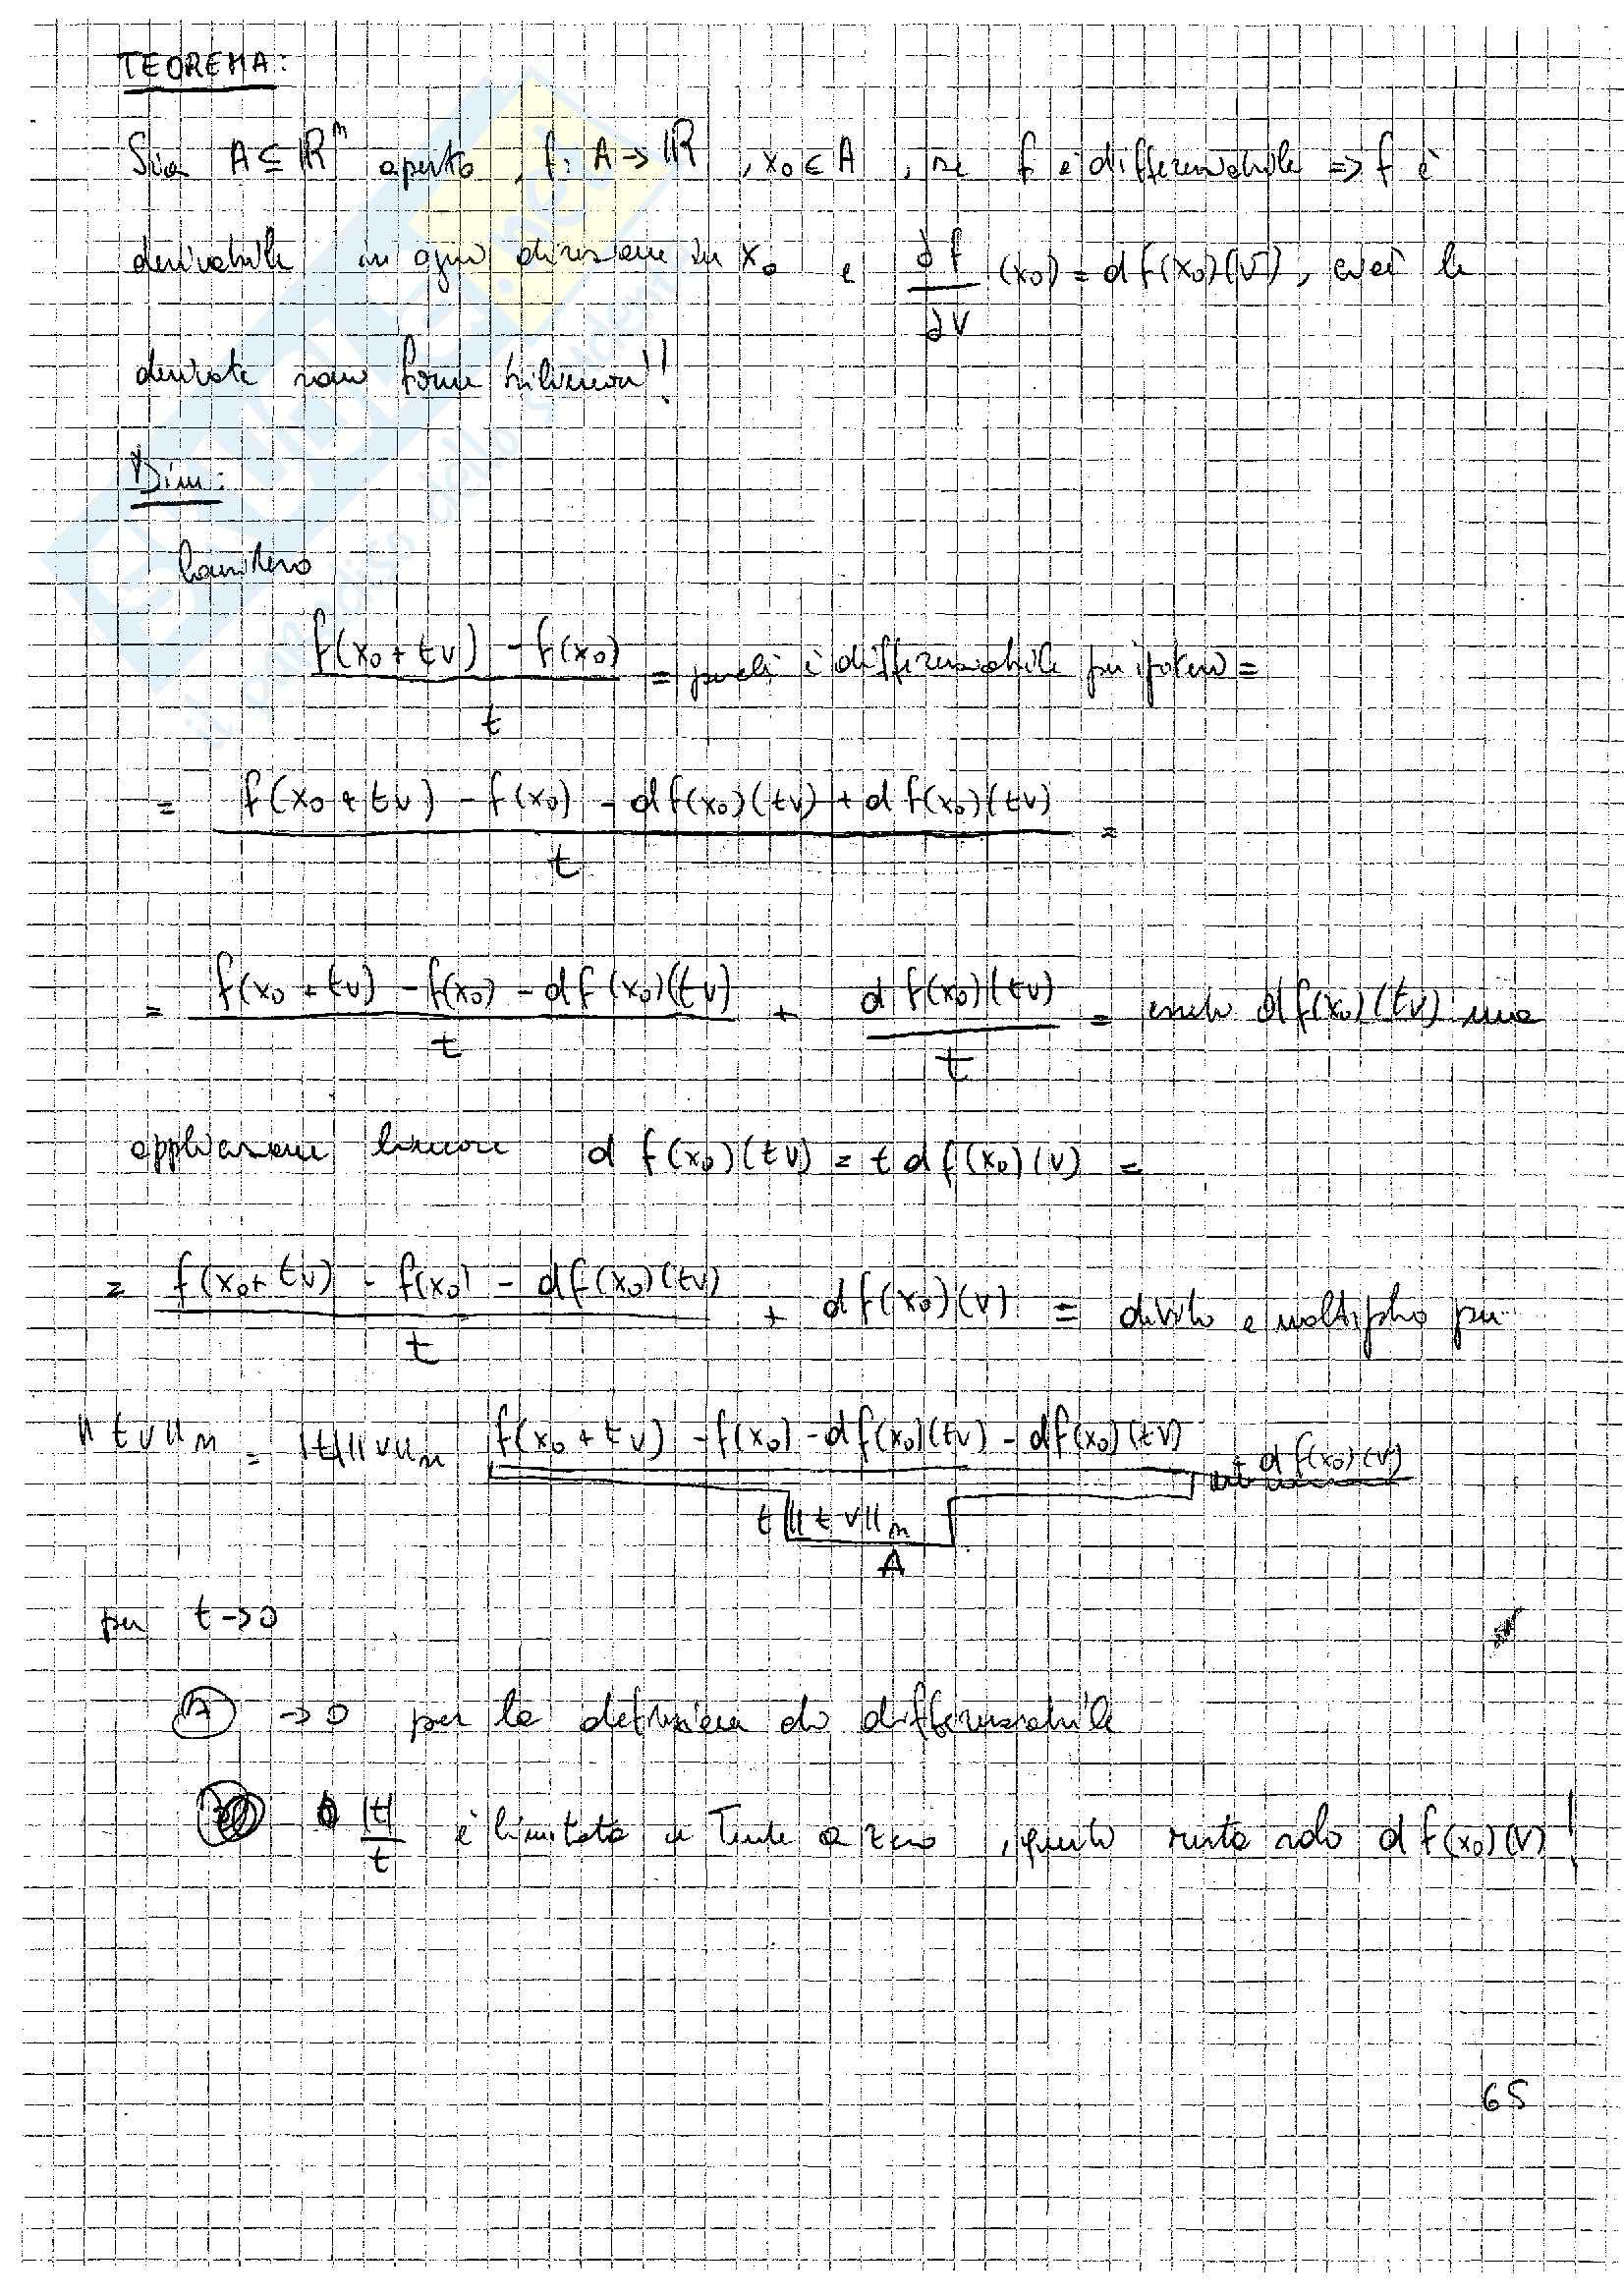 TEOREMA:
Sia A ⊆ ℝⁿ aperto, f: A → ℝ, x₀ ∈ A, se f è differenziabile => f è
derivabile in ogni direzione in x₀ e ∂f/∂v (x₀) = df(x₀)(v), cioè le
derivate sono forme
Dim:
Considero
(f(x₀+tv) - f(x₀))/t = perché è differenziabile per ipotesi =
= (f(x₀+tv) - f(x₀) - df(x₀)(tv) + df(x₀)(tv))/t =
= (f(x₀+tv) - f(x₀) - df(x₀)(tv))/t + df(x₀)(tv)/t = essendo df(x₀)(tv) una
applicazione lineare df(x₀)(tv) = t df(x₀)(v) =
= (f(x₀+tv) - f(x₀) - df(x₀)(tv))/t + df(x₀)(v) = divido e moltiplico per
||tv||ₙ = |t| ||v||ₙ (f(x₀+tv) - f(x₀) - df(x₀)(tv) - df(x₀)(tv))/(t ||tv||ₙ) + df(x₀)(v)
A
per t → 0
A → 0 per la definizione di differenziabile
|t|/t è limitato e tende a zero, quindi resta solo df(x₀)(v)!
65